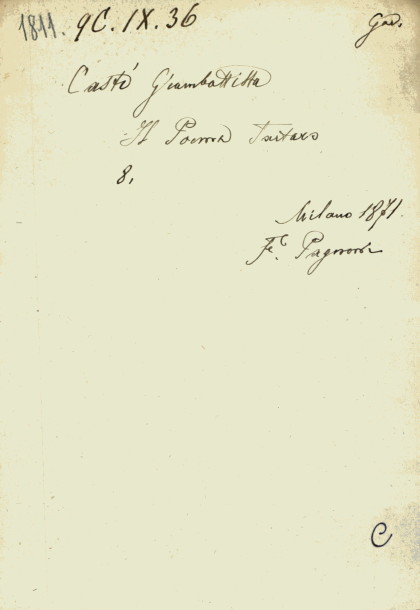 1811. 9C. IX. 36 God.
Casti Giambattista
Il Poema Tartaro
8,
Milano 1871.
Fc. Pagnoni
C